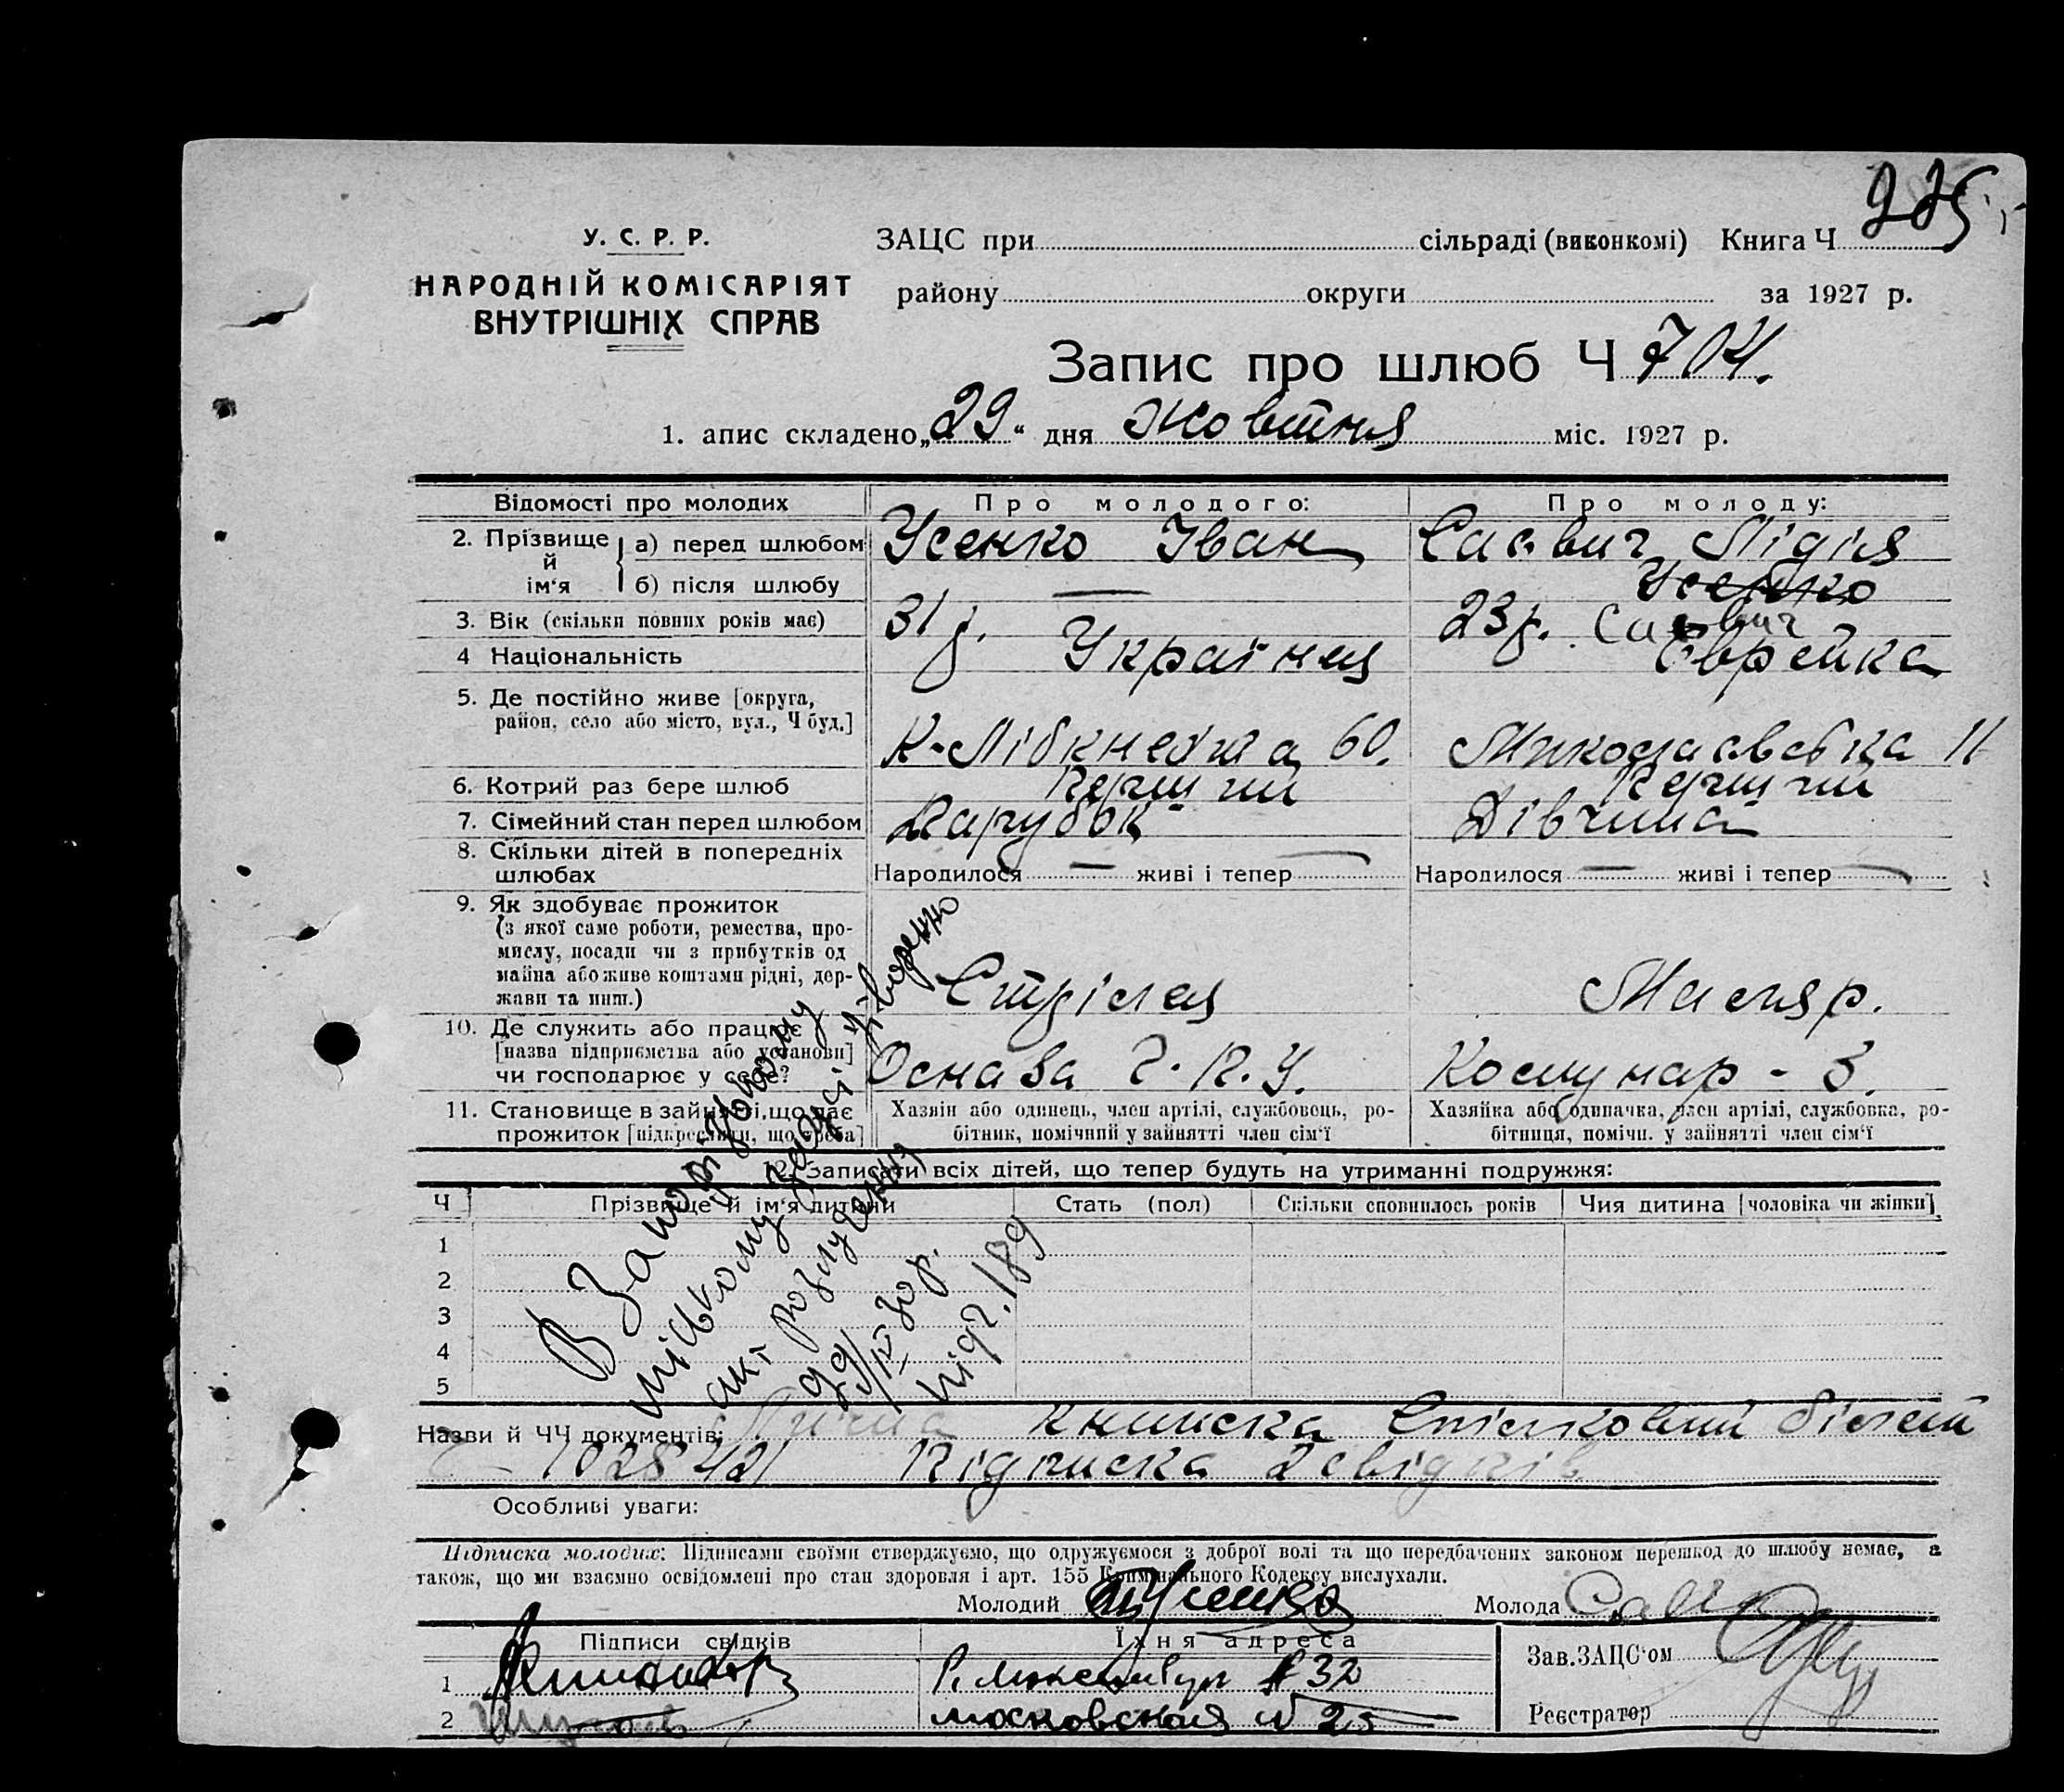 225
У. С. Р. Р.
НАРОДНІЙ КОМІСАРІЯТ
ВНУТРІШНІХ СПРАВ
ЗАЦС при сільраді (виконкомі) Книга Ч
району округи за 1927 р.
Запис про шлюб Ч 704.
1. апис складено „29“ дня Жовтня міс. 1927 р.
Відомості про молодих Про молодого: Про молоду:
2. Прізвище й ім'я а) перед шлюбом Усенко Іван Савич Лідія
б) після шлюбу — Усенко
3. Вік (скільки повних років має) 31 р. 23 р. Савич
4 Національність Українец Єврейка
5. Де постійно живе [округа,
район, село або місто, вул., Ч буд.] К-Лібкнехта 60. Миколаєвська 11
6. Котрий раз бере шлюб Перший Перший
7. Сімейний стан перед шлюбом Парубок Дівчина
8. Скільки дітей в попередніх
шлюбах Народилося — живі і тепер — Народилося — живі і тепер —
9. Як здобуває прожиток
(з якої саме роботи, ремества, про-
мислу, посади чи з прибутків од
майна або живе коштами рідні, дер-
жави та инш.) Стрілец Маляр.
10. Де служить або працює
[назва підприємства або установи]
чи господарює у себе? Основа Г.П.У. Комунар - 3.
11. Становище в зайнятті, що дає
прожиток [підкреслити, що треба]
Хазяїн або одинець, член артілі, службовець, ро-
бітник, помічний у зайнятті член сім'ї
Хазяйка або одиначка, член артілі, службовка, ро-
бітниця, помічн. у зайнятті член сім'ї
12. Записати всіх дітей, що тепер будуть на утриманні подружжя:
Ч Прізвище й ім'я дитини Стать (пол) Скільки сповнилось років Чия дитина [чоловіка чи жінки]
1
2
3
4
5
В Запорізькому
міському зацсі утворено
акт розлучення
29/IV 30 р.
під ч. 189
Назви й ЧЧ документів: Лична книжка Спілковий білет
102842 Підписка 2 свідків
Особливі уваги:
Підписка молодих: Підписами своїми стверджуємо, що одружуємося з доброї волі та що передбачених законом перешкод до шлюбу немає, а
також, що ми взаємно освідомлені про стан здоровля і арт. 155 Кримінального Кодексу вислухали.
Молодий Усенко Молода Савич
Підписи свідків Їхня адреса
1 № 32
2 московская № 25
Зав. ЗАЦС'ом
Реєстратор